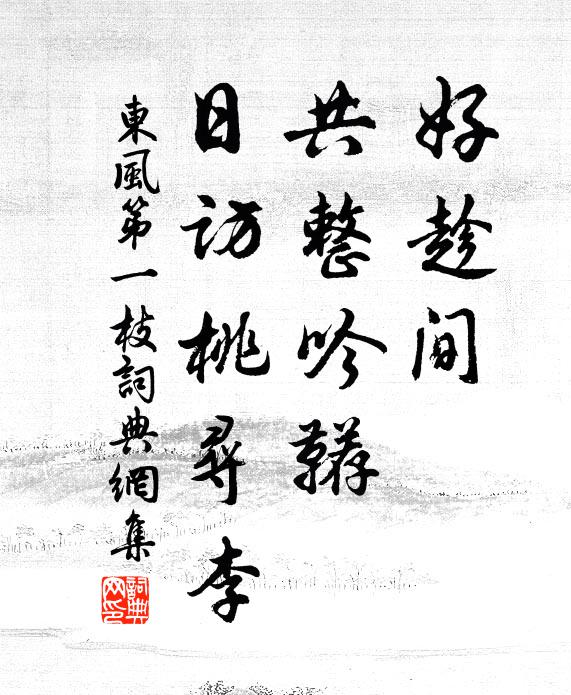 好趁間
共整吟鞯
日訪桃尋李
東風第一枝詞典網集
詞典
网印